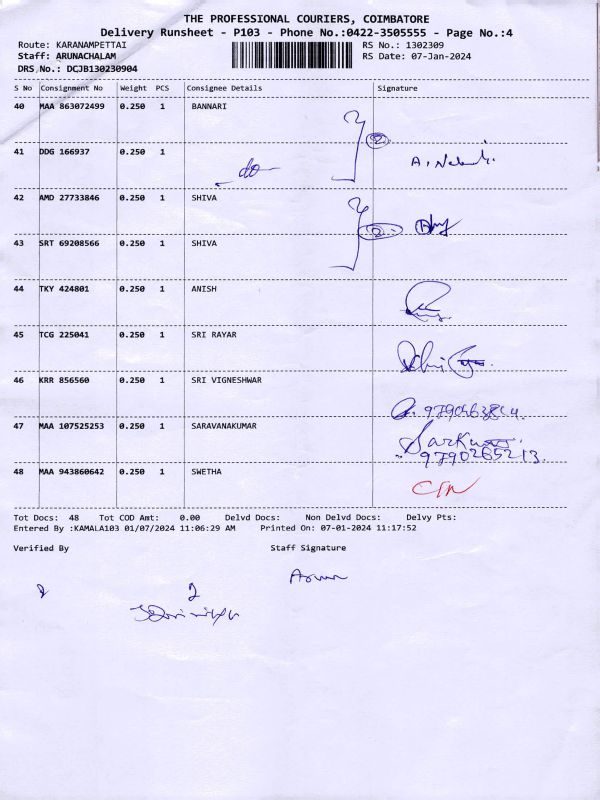 THE PROFESSIONAL COURIERS, COIMBATORE
Delivery Runsheet - P103 - Phone No.:0422-3505555 - Page No.:4
Route: KARANAMPETTAI RS No.: 1302309
Staff: ARUNACHALAM RS Date: 07-Jan-2024
DRS No.: DCJB130230904
S No Consignment No Weight PCS Consignee Details Signature
40 MAA 863072499 0.250 1 BANNARI
2
41 DDG 166937 0.250 1
do
42 AMD 27733846 0.250 1 SHIVA
2
43 SRT 69208566 0.250 1 SHIVA
44 TKY 424801 0.250 1 ANISH
45 TCG 225041 0.250 1 SRI RAYAR
46 KRR 856560 0.250 1 SRI VIGNESHWAR
47 MAA 107525253 0.250 1 SARAVANAKUMAR
9790265213.
48 MAA 943860642 0.250 1 SWETHA
Tot Docs: 48 Tot COD Amt: 0.00 Delvd Docs: Non Delvd Docs: Delvy Pts:
Entered By :KAMALA103 01/07/2024 11:06:29 AM Printed On: 07-01-2024 11:17:52
Verified By Staff Signature
Arun